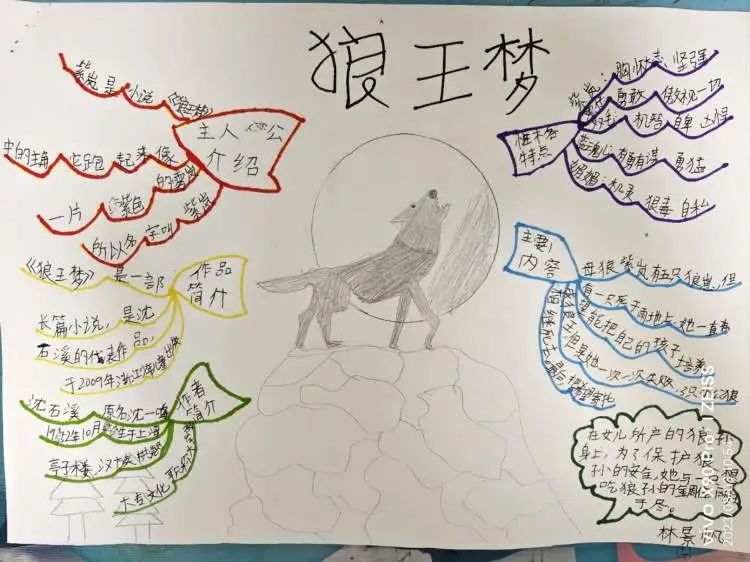 狼王梦
主人公
介绍
紫岚是小说《狼王梦》
中的主角 它跑起来像
一片紫色的雾
所以名字叫紫岚
作品
简介
《狼王梦》是一部
长篇小说，是沈
石溪的代表作品，
于2009年浙江少年儿童出版
作者
简介
沈石溪 原名沈一鸣
1952年10月 生于上海
亭子楼，汉族
大专文化
性格
特点
紫岚：胸怀大志、坚强
勇敢 傲视一切
双毛：机智 自卑
有勇有谋 勇猛
媚媚： 狠毒 自私
主要
内容
母狼紫岚有五只狼崽，但
有一只死于雨地上，她一直希
望能把自己的孩子培养
成狼王 但是她一次一次失败，
相继死去
在女儿所产的狼孙
身上，为了保护狼
孙的安全，她与一只想
吃狼孙的金雕同归
于尽。
林景帆
vivo X60 Pro | ZEISS